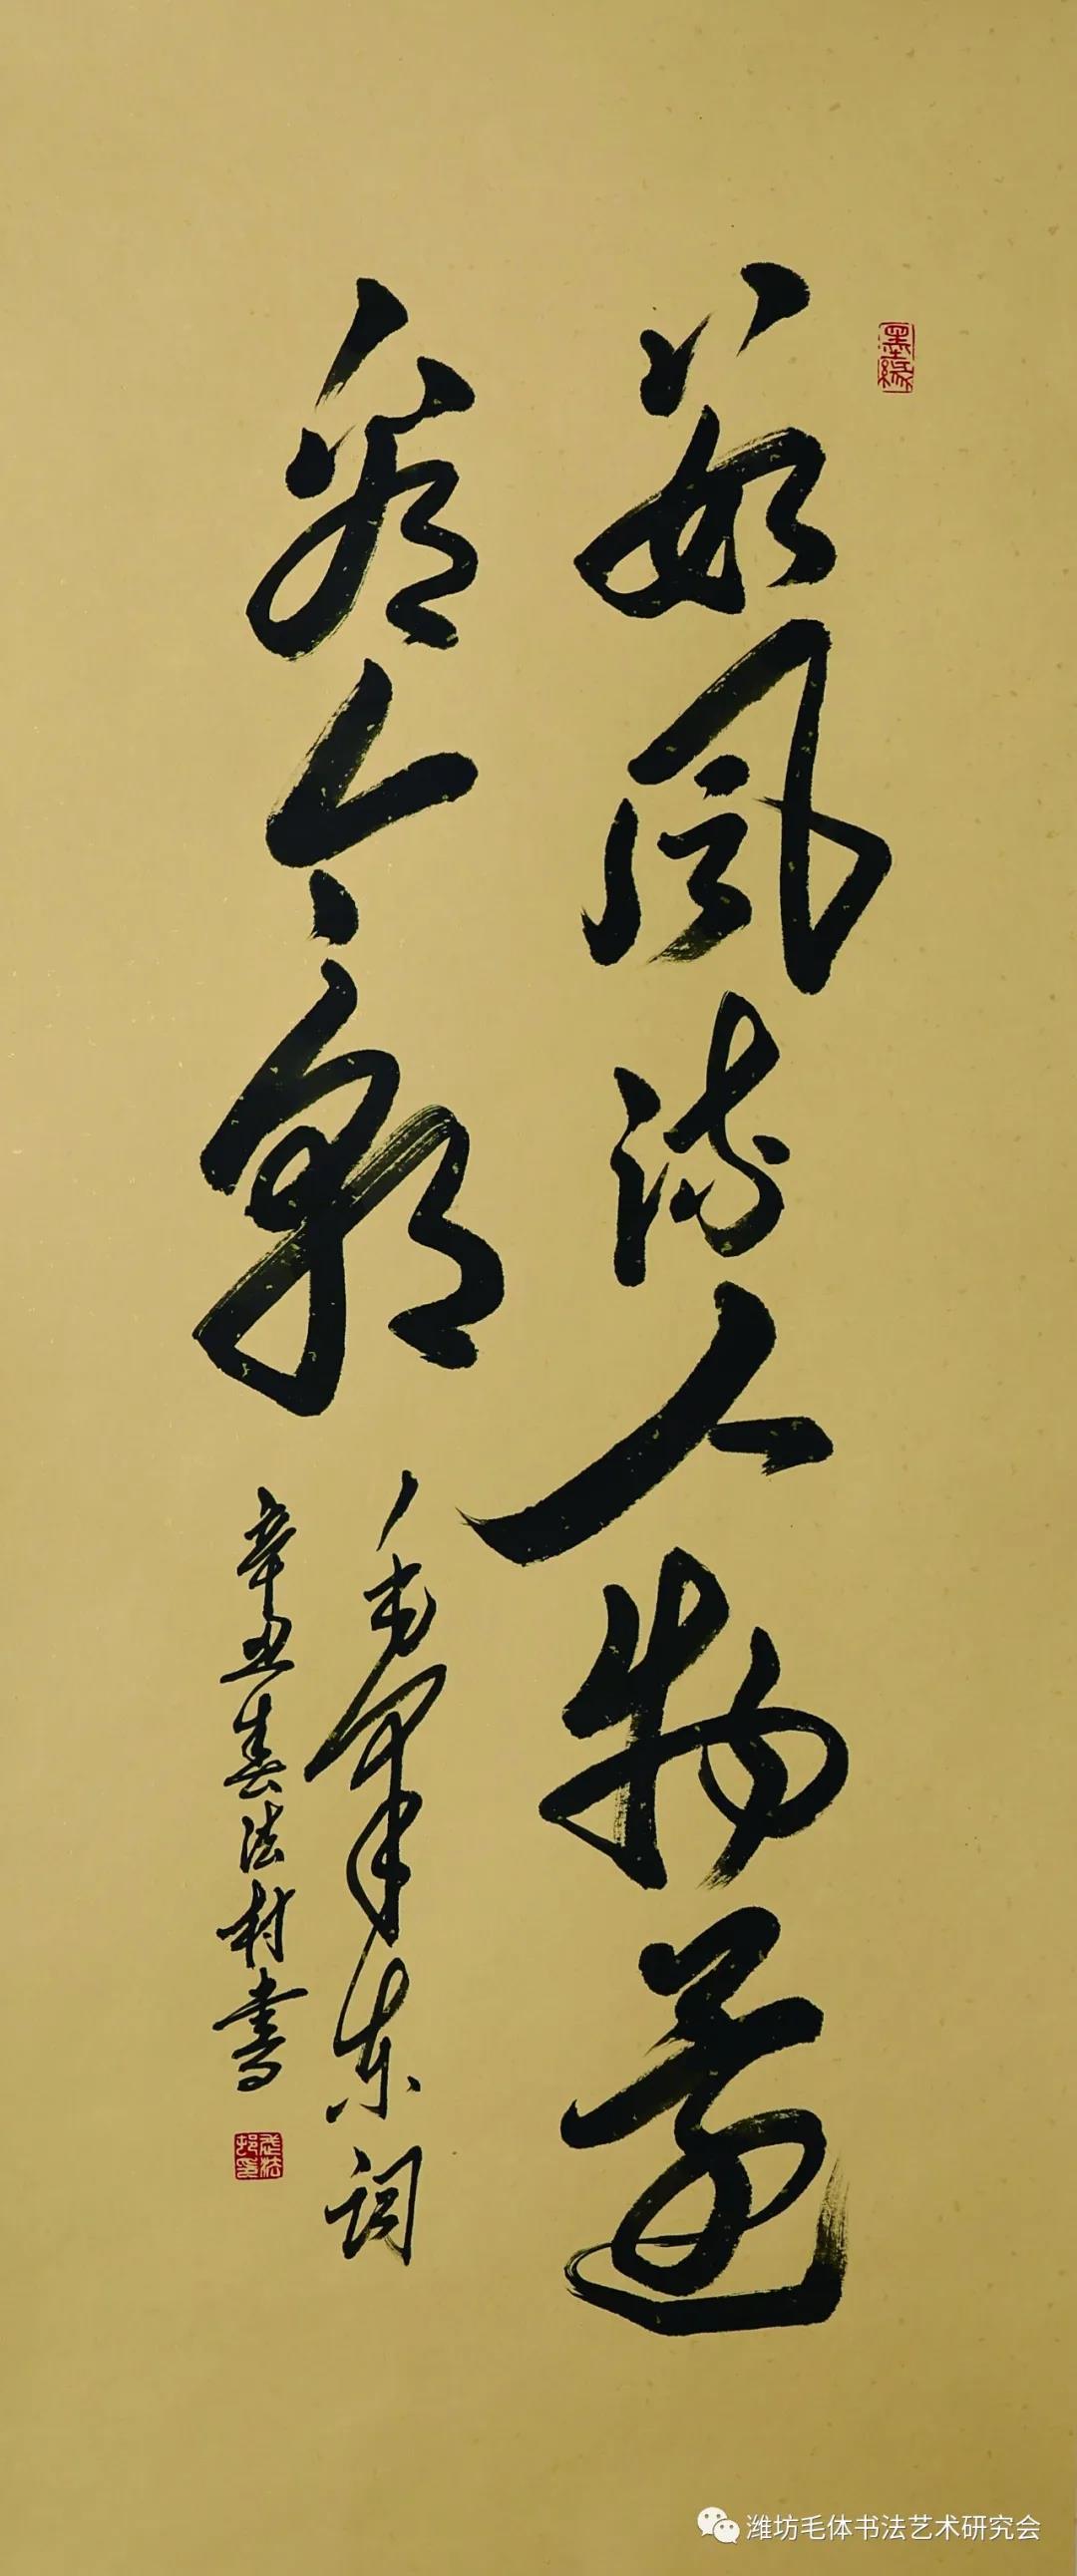 墨緣
数風流人物還
看今朝
毛澤東詞
辛丑春法村書
潍坊毛体书法艺术研究会